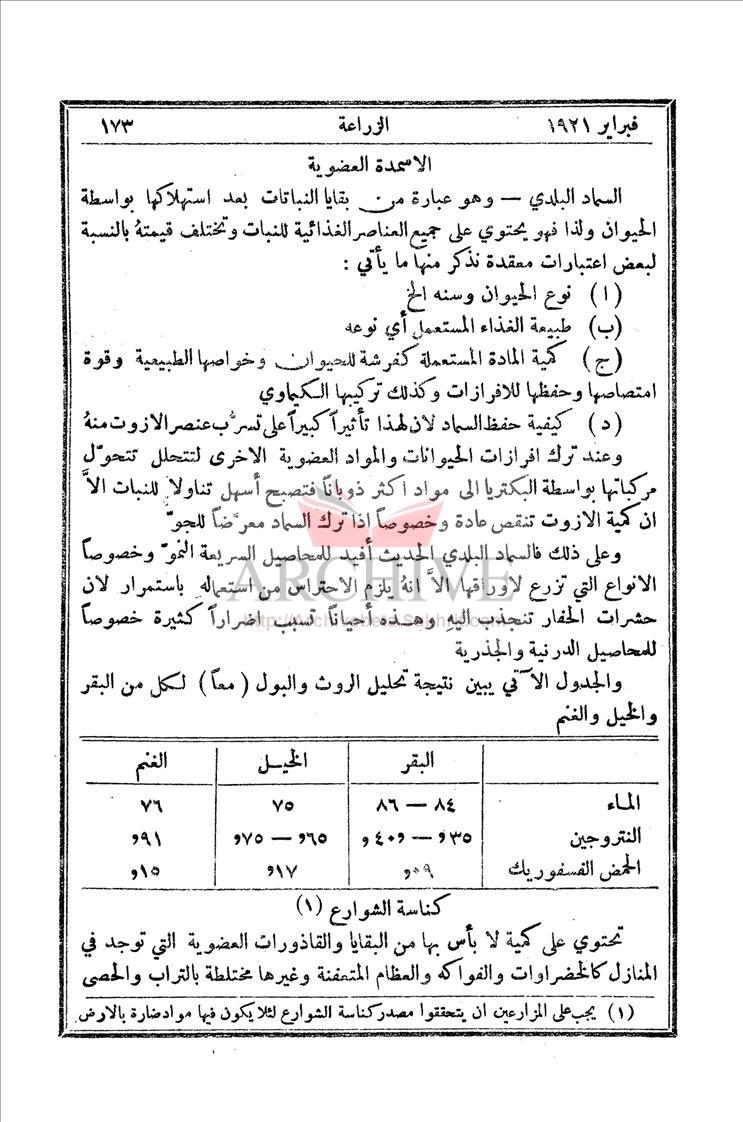 فبراير ١٩٢١ الزراعة ١٧٣
الاسمدة العضوية
السماد البلدي — وهو عبارة من بقايا النباتات بعد استهلاكها بواسطة
الحيوان ولذا فهو يحتوي على جميع العناصر الغذائية للنبات وتختلف قيمتهُ بالنسبة
لبعض اعتبارات معقدة نذكر منها ما يأتي :
(ا) نوع الحيوان وسنه الخ
(ب) طبيعة الغذاء المستعمل أي نوعه
(ج) كمية المادة المستعملة كفرشة للحيوان وخواصها الطبيعية وقوة
امتصاصها وحفظها للافرازات وكذلك تركيبها الكيماوي
(د) كيفية حفظ السماد لان لهذا تأثيراً كبيراً على تسرُّب عنصر الازوت منهُ
وعند ترك افرازات الحيوانات والمواد العضوية الاخرى لتتحلل تتحوّل
مركباتها بواسطة البكتريا الى مواد اكثر ذوباناً فتصبح أسهل تناولاً للنبات الاَّ
ان كمية الازوت تنقص عادة وخصوصاً اذا ترك السماد معرَّضاً للجوّ
وعلى ذلك فالسماد البلدي الحديث أفيد للمحاصيل السريعة النموّ وخصوصاً
الانواع التي تزرع لاوراقها الاَّ انهُ يلزم الاحتراس من استعماله باستمرار لان
حشرات الحفار تنجذب اليه وهذه أحياناً تسبب اضراراً كثيرة خصوصاً
للمحاصيل الدرنية والجذرية
والجدول الآتي يبين نتيجة تحليل الروث والبول (معاً) لكل من البقر
والخيل والغنم
البقر الخيل الغنم
الماء ٨٤ — ٨٦ ٧٥ ٧٦
النتروجين ٣٥و — ٤٠و ٦٥و — ٧٥و ٩١و
الحمض الفسفوريك ٠٩و ١٧و ١٥و
كناسة الشوارع (١)
تحتوي على كمية لا بأس بها من البقايا والقاذورات العضوية التي توجد في
المنازل كالخضراوات والفواكه والعظام المتعفنة وغيرها مختلطة بالتراب والحصى
(١) يجب على المزارعين ان يتحققوا مصدر كناسة الشوارع لئلا يكون فيها مواد ضارة بالارض
ARCHIVE